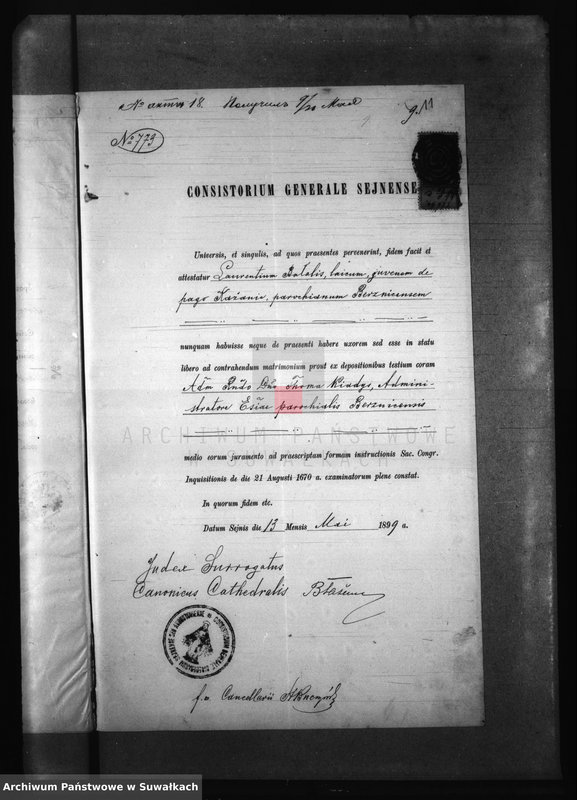 № актов 18. Получено 9/20 Мая
9.11
№ 773
CONSISTORIUM GENERALE SEJNENSE
Universis, et singulis, ad quos praesentes pervenerint, fidem facit et
attestatur Laurentium Batalis, laicum, juvenem de
pago Kaźanie, parochianum Berznicensem
nunquam habuisse neque de praesenti habere uxorem sed esse in statu
libero ad contrahendum matrimonium prout ex depositionibus testium coram
Adm Rndo Dno Thoma Kindys, Admini-
stratore Ecliae parochialis Berznicensis
medio eorum juramento ad praescriptam formam instructionis Sac. Congr.
Inquisitionis de die 21 Augusti 1670 a. examinatorum plene constat.
In quorum fidem etc.
Datum Sejnis die 13 Mensis Mai 1899 a.
Judex Surrogatus
Canonicus Cathedralis
f.v. Cancellarii
ARCHIWUM PAŃSTWOWE
W SUWAŁKACH
Archiwum Państwowe w Suwałkach